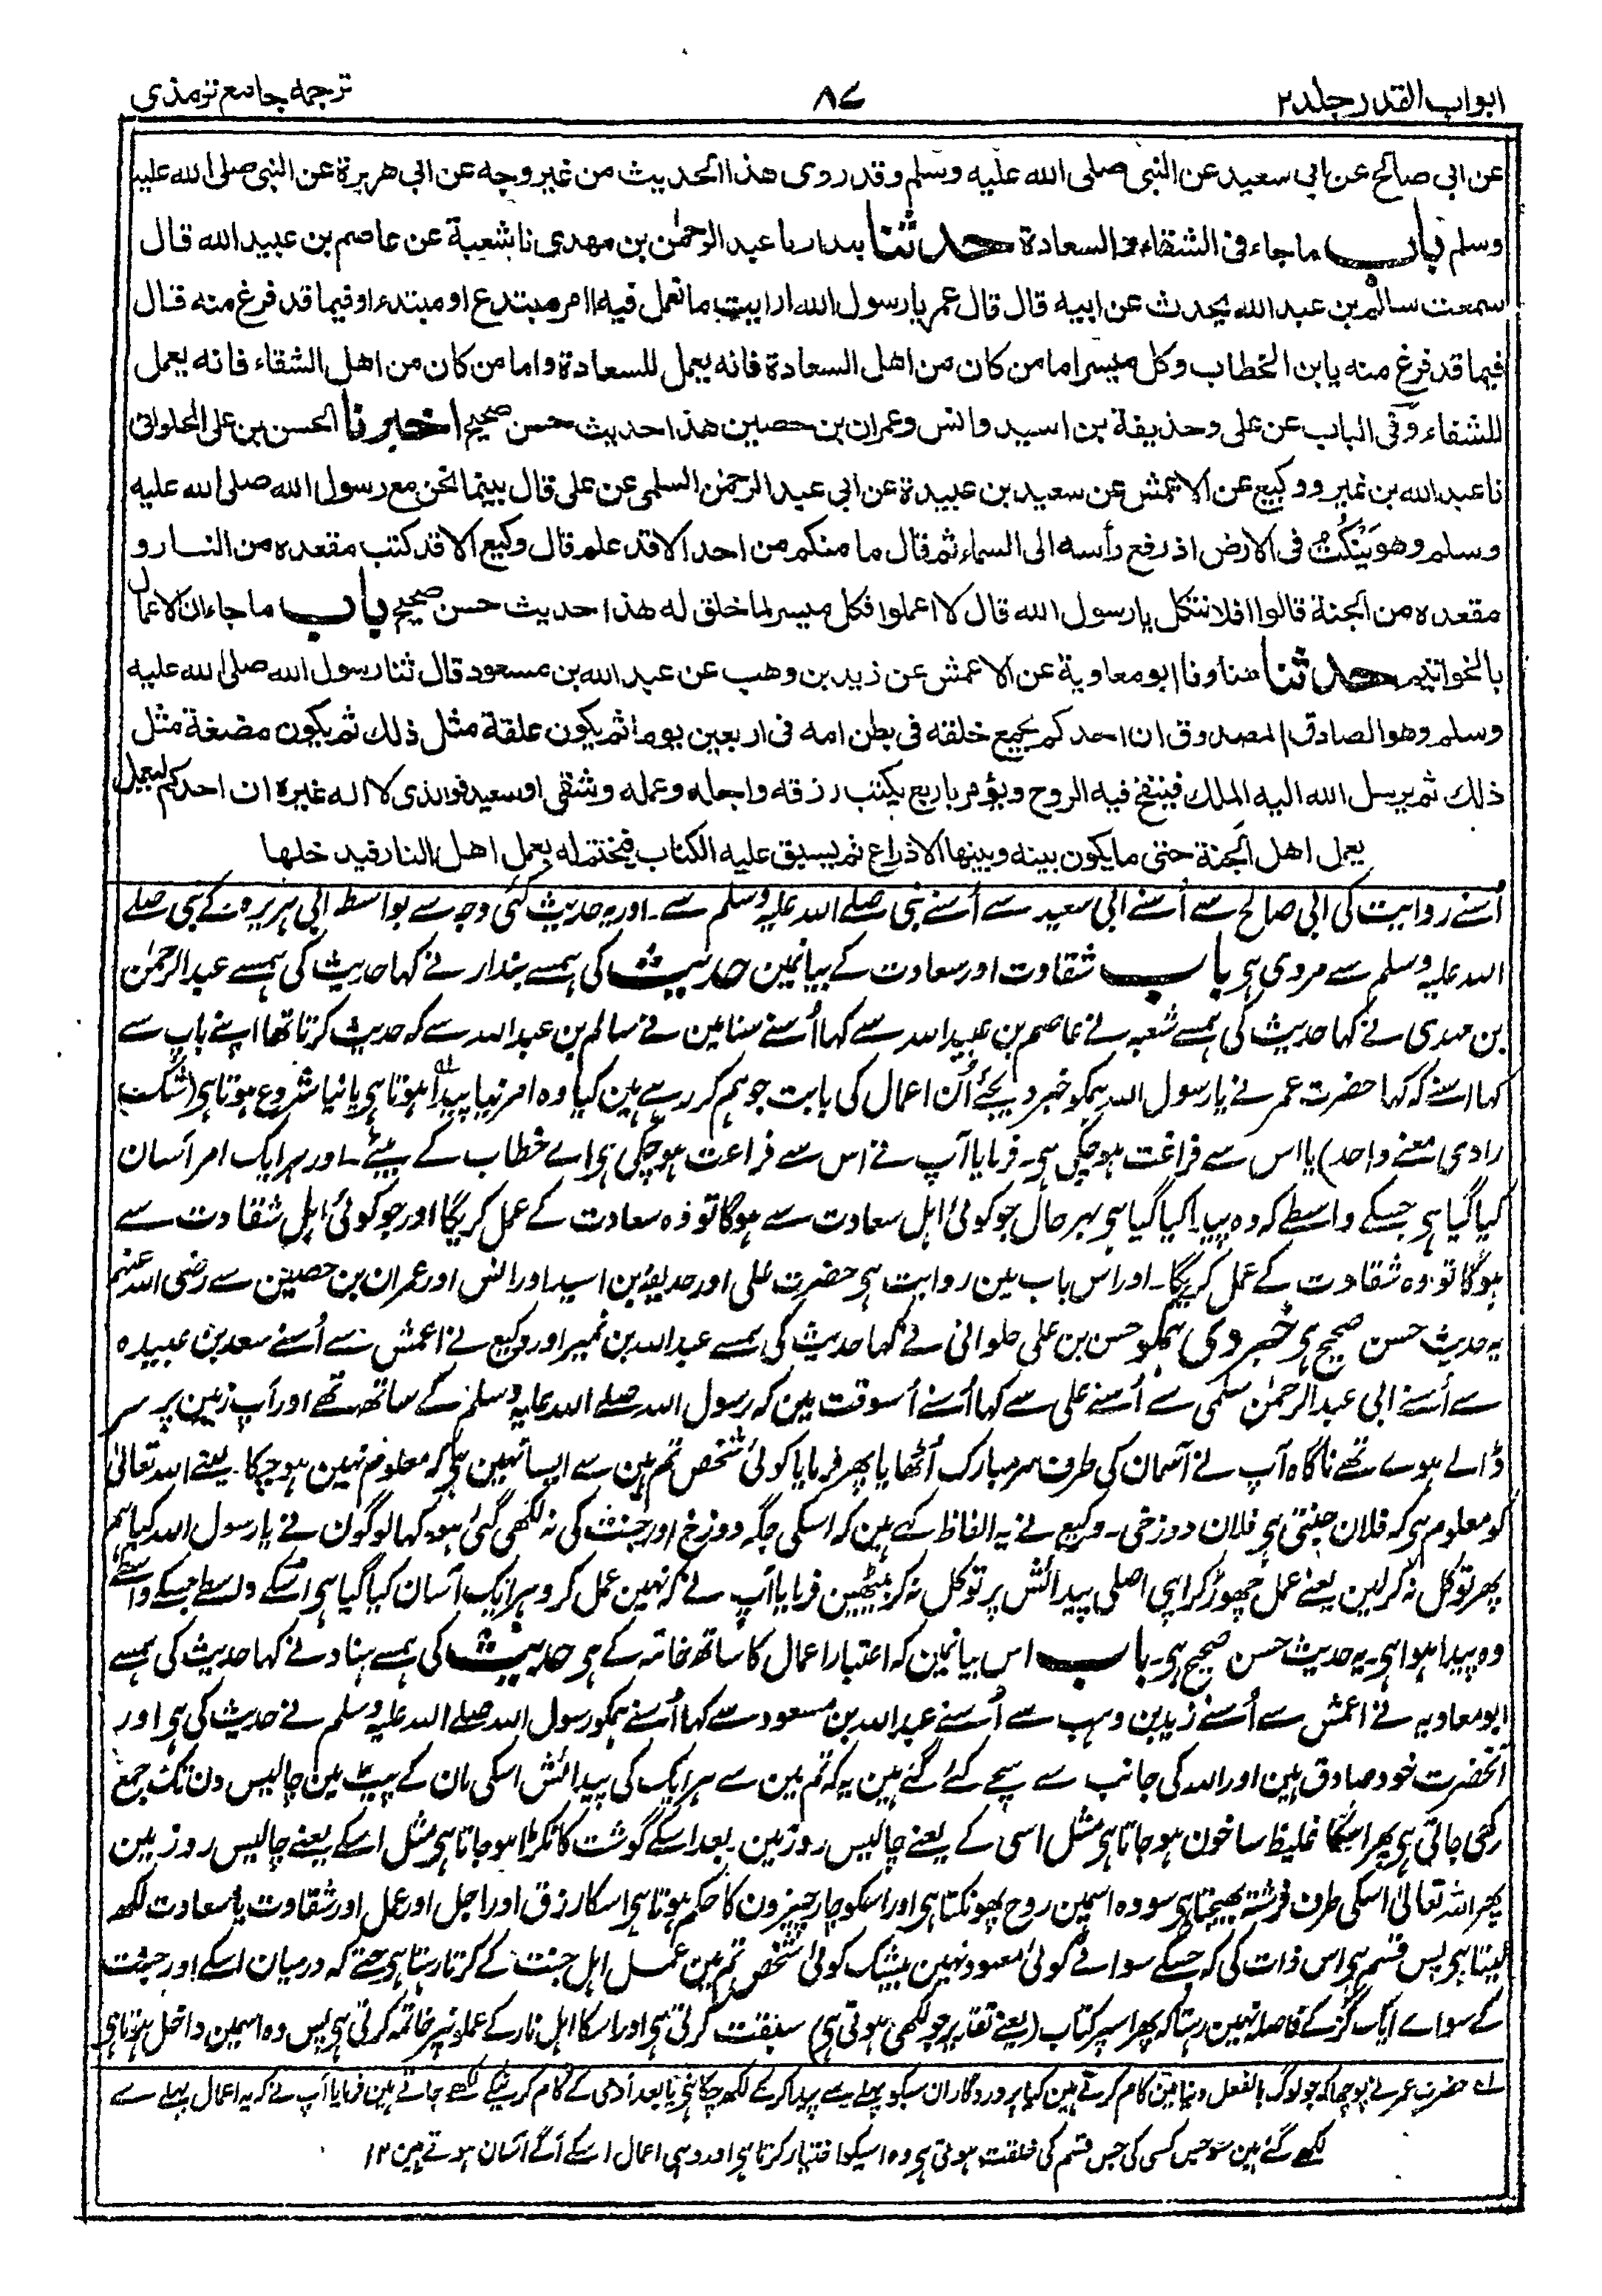 ابواب القدر جلد ۲
۸۷
ترجمہ جامع ترمذی
عن ابی صالح عن ابی سعید عن النبی صلی الله علیه وسلم وقد روی هذا الحدیث من غیر وجه عن ابی هریرة عن النبی صلی الله علیه
وسلم باب ما جاء فی الشقاء والسعادة حدثنا بندار نا عبد الرحمٰن بن مهدی نا شعبة عن عاصم بن عبید الله قال
سمعت سالم بن عبد الله یحدث عن ابیه قال قال عمر یا رسول الله ارایت ما نعمل فیه امر مبتدع او مبتدء او فیما قد فرغ منه قال
فیما قد فرغ منه یا بن الخطاب وکل میسر اما من کان من اهل السعادة فانه یعمل للسعادة واما من کان من اهل الشقاء فانه یعمل
للشقاء وفی الباب عن علی وحذیفة بن اسید وانس وعمران بن حصین هذا حدیث حسن صحیح اخبرنا الحسن بن علی الحلوانی
نا عبد الله بن نمیر ووکیع عن الاعمش عن سعید بن عبیدة عن ابی عبد الرحمٰن السلمی عن علی قال بینما نحن مع رسول الله صلی الله علیه
وسلم وهو یَنْکُتُ فی الارض اذ رفع رأسه الی السماء ثم قال ما منکم من احد الا قد علم قال وکیع الا قد کتب مقعده من النار و
مقعده من الجنة قالوا افلا نتکل یا رسول الله قال لا اعملوا فکل میسر لما خلق له هذا حدیث حسن صحیح باب ما جاء ان الاعمال
بالخواتیم حدثنا هناد نا ابو معاویة عن الاعمش عن زید بن وهب عن عبد الله بن مسعود قال ثنا رسول الله صلی الله علیه
وسلم وهو الصادق المصدوق ان احدکم یجمع خلقه فی بطن امه فی اربعین یوما ثم یکون علقة مثل ذلك ثم یکون مضغة مثل
ذلك ثم یرسل الله الیه الملك فینفخ فیه الروح ویؤمر باربع یکتب رزقه واجله وعمله وشقی او سعید فوالذی لا اله غیره ان احدکم لیعمل
یعمل اهل الجنة حتی ما یکون بینه وبینها الا ذراع ثم یسبق علیه الکتاب فیختم له بعمل اهل النار فیدخلها
اُسنے روایت کی ابی صالح سے اُسنے ابی سعید سے اُسنے نبی صلے اللہ علیہ وسلم سے۔ اور یہ حدیث کئی وجہ سے بواسطہ ابی ہریرہ کے نبی صلے
اللہ علیہ وسلم سے مروی ہی باب شقاوت اور سعادت کے بیانمین حدیث کی ہمسے بندار نے کہا حدیث کی ہمسے عبد الرحمٰن
بن مہدی نے کہا حدیث کی ہمسے شعبہ نے عاصم بن عبید اللہ سے کہا اُسنے سنا مین نے سالم بن عبد اللہ سے کہ حدیث کرتا تھا اپنے باپ سے
کہا اسنے کہ کہا حضرت عمر نے یا رسول اللہ ہمکو خبر دیجئے اُن اعمال کی بابت جو ہم کر رہے ہین کیا وہ امر نیا پیدا ہوتا ہی یا نیا شروع ہوتا ہی (شک
راوی معنے واحد) یا اس سے فراغت ہو چکی ہی۔ فرمایا آپ نے اس سے فراغت ہو چکی ہی اے خطاب کے بیٹے۔ اور ہر ایک امر آسان
کیا گیا ہی جسکے واسطے کہ وہ پیدا کیا گیا ہی بہر حال جو کوئی اہل سعادت سے ہوگا تو وہ سعادت کے عمل کریگا اور جو کوئی اہل شقاوت سے
ہوگا تو وہ شقاوت کے عمل کریگا۔ اور اس باب مین روایت ہی حضرت علی اور حذیفہ بن اسید اور انس اور عمران بن حصین سے رضی اللہ عنہم
یہ حدیث حسن صحیح ہی خبر دی ہمکو حسن بن علی حلوانی نے کہا حدیث کی ہمسے عبد اللہ بن نمیر اور وکیع نے اعمش سے اُسنے سعد بن عبیدہ
سے اُسنے ابی عبد الرحمٰن سلمی سے اُسنے علی سے کہا اُسنے اُسوقت مین کہ رسول اللہ صلے اللہ علیہ وسلم کے ساتھ تھے اور آپ زمین پر سر
ڈالے ہوے تھے ناگاہ آپ نے آسمان کی طرف سر مبارک اُٹھایا پھر فرمایا کوئی شخص تم مین سے ایسا نہین ہی کہ معلوم نہین ہو چکا۔ یعنے اللہ تعالیٰ
کو معلوم ہی کہ فلان جنتی ہی فلان دوزخی۔ وکیع نے یہ الفاظ کہے ہین کہ اسکی جگہ دوزخ اور جنت کی نہ لکھی گئی ہو۔ کہا لوگون نے یا رسول اللہ کیا ہم
پھر توکل نہ کرلین یعنے عمل چھوڑ کر اپنی اصلی پیدائش پر توکل نہ کر بیٹھین فرمایا آپ نے کہ نہین عمل کرو ہر ایک آسان کیا گیا ہی اسکے واسطے جسکے واسطے
وہ پیدا ہوا ہی۔ یہ حدیث حسن صحیح ہی۔ باب اس بیانمین کہ اعتبار اعمال کا ساتھ خاتمہ کے ہی حدیث کی ہمسے ہناد نے کہا حدیث کی ہمسے
ابو معاویہ نے اعمش سے اُسنے زید بن وہب سے اُسنے عبد اللہ بن مسعود سے کہا اُسنے ہمکو رسول اللہ صلے اللہ علیہ وسلم نے حدیث کی ہی اور
آنحضرت خود صادق ہین اور اللہ کی جانب سے سچے کئے گئے ہین یہ کہ تم مین سے ہر ایک کی پیدائش اسکی مان کے پیٹ مین چالیس دن تک جمع
رکھی جاتی ہی پھر اسکا غلیظ سا خون ہو جاتا ہی مثل اسی کے یعنے چالیس روز مین۔ بعد اسکے گوشت کا ٹکڑا ہو جاتا ہی مثل اسکے یعنے چالیس روز مین
پھر اللہ تعالیٰ اسکی طرف فرشتہ بھیجتا ہی سو وہ اسمین روح پھونکتا ہی اور اسکو چار چیزون کا حکم ہوتا ہی اسکا رزق اور اجل اور عمل اور شقاوت یا سعادت لکھ
لیتا ہی پس قسم ہی اس ذات کی کہ جسکے سوائے کوئی معبود نہین بیشک کوئی شخص تم مین عمل اہل جنت کے کرتا رہتا ہی حتے کہ درمیان اسکے اور جنت
کے سواے ایک گز کے فاصلہ نہین رہتا کہ پھر اسپر کتاب (یعنے تقدیر جو لکھی ہوتی ہی) سبقت کرتی ہی اور اسکا اہل نار کے عملونپر خاتمہ کرتی ہی پس وہ اسمین داخل ہوتا ہی
لہ حضرت عمر نے پوچھا کہ جو لوگ بالفعل دنیا مین کام کرتے ہین کیا پروردگار ان سبکو پہلے سے پیدا کر کے لکھ چکا ہی یا بعد آدمی کے کام کرنیکے لکھے جاتے ہین فرمایا آپ نے کہ یہ اعمال پہلے سے
لکھے گئے ہین سو جس کسی کی جس قسم کی خلقت ہوتی ہی وہ اسیکو اختیار کرتا ہی اور وہی اعمال اسکے آگے آسان ہوتے ہین ۱۲